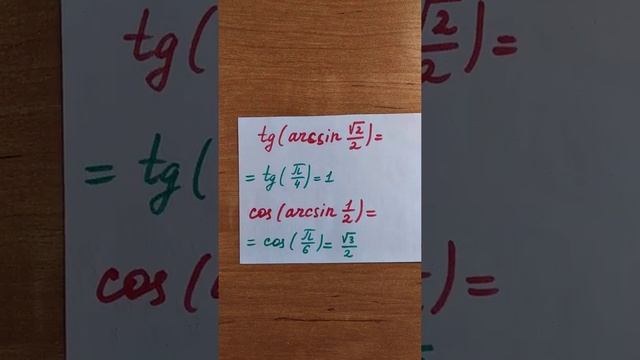 tg(arcsin √2/2)=
= tg(π/4)=1
cos(arcsin 1/2)=
= cos(π/6)= √3/2